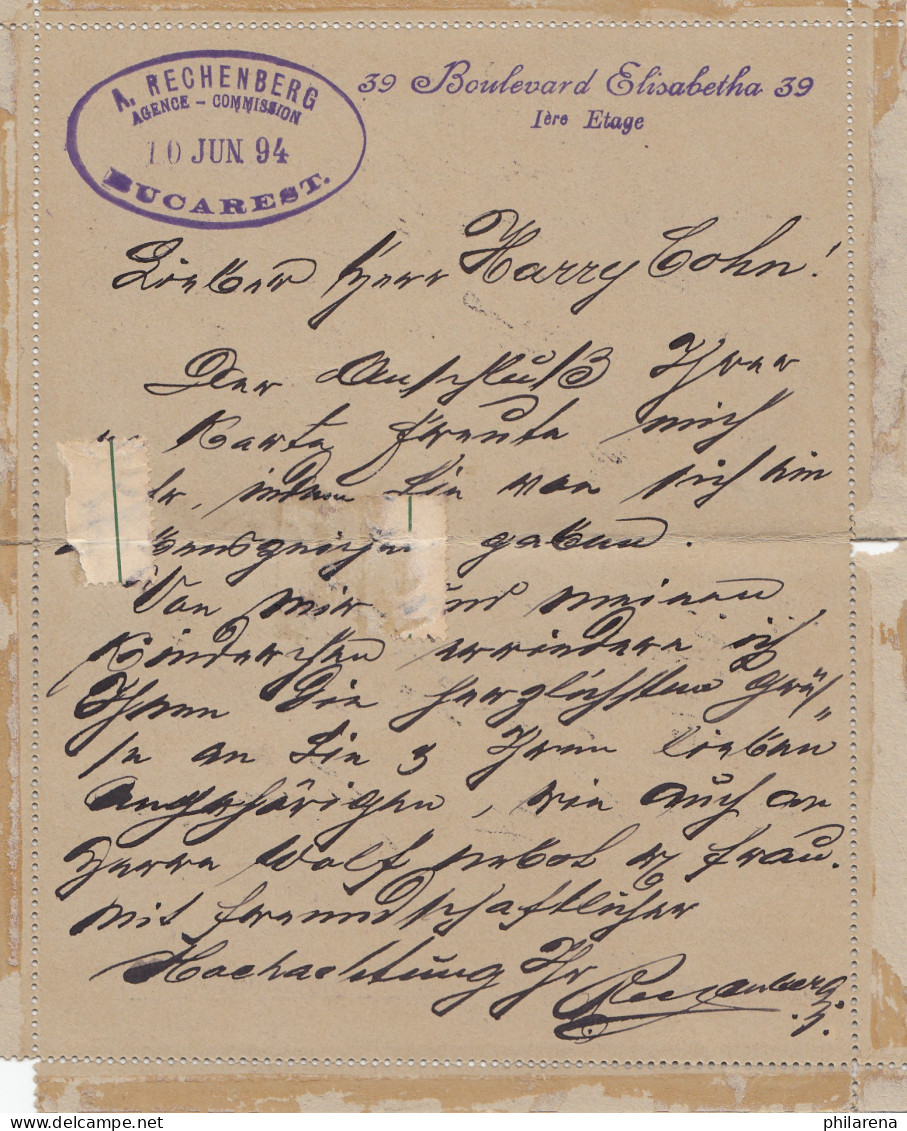 A. RECHENBERG
AGENCE – COMMISSION
10 JUN 94
BUCAREST.
39 Boulevard Elisabetha 39
Ière Etage
Lieber Herr Harry Cohn!
Der Anschluß Ihrer
Karte freute mich
indem Sie von sich ein
gaben.
Von mir und meinen
Kinderchen erwiedere ich
Ihnen die herzlichsten Grüs"
se an Sie & Ihren lieben
Angehörigen, wie auch an
Herrn Wolf nebst Frau.
Mit freundschaftlicher
Hochachtung Ihr
Rechenberg
philarena